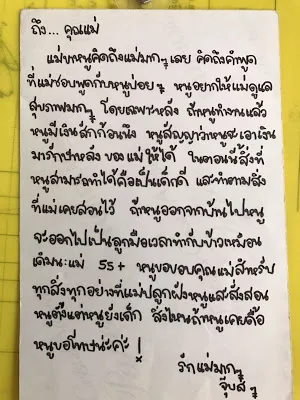 ถึง... คุณแม่
แม่ขาหนูคิดถึงแม่มากๆเลย คิดถึงคำพูด
ที่แม่ชอบพูดกับหนูบ่อยๆ หนูอยากให้แม่ดูแล
สุขภาพมากๆ โดยเฉพาะหลัง ถ้าหนูทำงานแล้ว
หนูมีเงินสักก้อนนึง หนูสัญญาว่าหนูจะเอาเงิน
มารักษาหลังของแม่ให้ได้ ในตอนนี้สิ่งที่
หนูสามารถทำได้คือเป็นเด็กดี และทำตามสิ่ง
ที่แม่เคยสอนไว้ ถ้าหนูออกจากบ้านไปหนู
จะออกไปเป็นลูกมือเวลาทำกับข้าวเหมือน
เดิมนะแม่ 55+ หนูขอขอบคุณแม่สำหรับ
ทุกสิ่งทุกอย่างที่แม่ปลูกฝังหนูและสั่งสอน
หนูตั้งแต่หนูยังเด็ก สิ่งไหนถ้าหนูเคยดื้อ
หนูขอโทษนะค่ะ !
รักแม่มากๆ